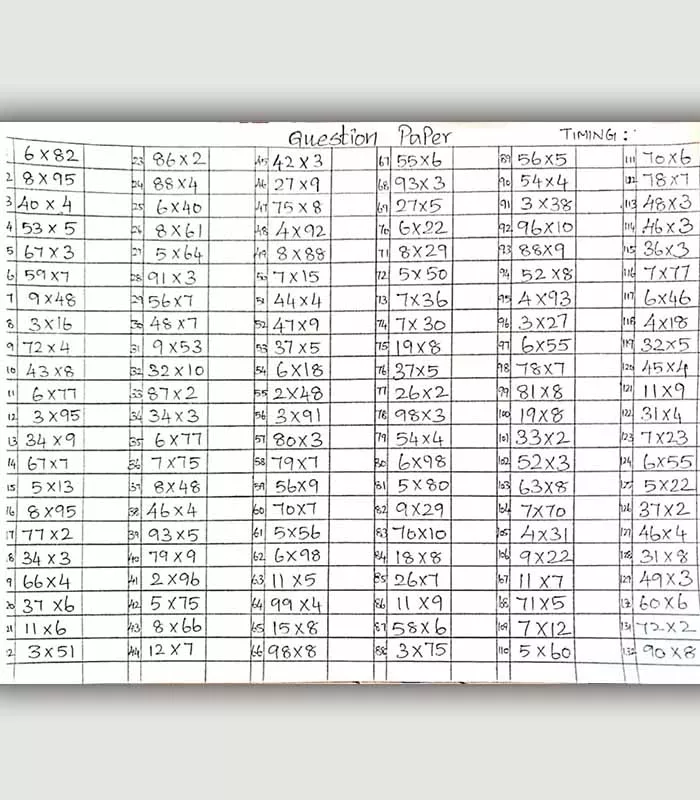 Question Paper TIMING:
6×82 23 86×2 45 42×3 67 55×6 89 56×5 111 70×6
2 8×95 24 88×4 46 27×9 68 93×3 90 54×4 112 78×7
3 40×4 25 6×40 47 75×8 69 27×5 91 3×38 113 48×3
4 53×5 26 8×61 48 4×92 70 6×22 92 96×10 114 46×3
5 67×3 27 5×64 49 8×88 71 8×29 93 88×9 115 36×3
6 59×7 28 91×3 50 7×15 72 5×50 94 52×8 116 7×77
7 9×48 29 56×7 51 44×4 73 7×36 95 4×93 117 6×46
8 3×16 30 48×7 52 47×9 74 7×30 96 3×27 118 4×18
9 72×4 31 9×53 53 37×5 75 19×8 97 6×55 119 32×5
10 43×8 32 32×10 54 6×18 76 37×5 98 78×7 120 45×4
11 6×77 33 87×2 55 2×48 77 26×2 99 81×8 121 11×9
12 3×95 34 34×3 56 3×91 78 98×3 100 19×8 122 31×4
13 34×9 35 6×77 57 80×3 79 54×4 101 33×2 123 7×23
14 67×7 36 7×75 58 79×7 80 6×98 102 52×3 124 6×55
15 5×13 37 8×48 59 56×9 81 5×80 103 63×8 125 5×22
16 8×95 38 46×4 60 70×7 82 9×29 104 7×70 126 37×2
17 77×2 39 93×5 61 5×56 83 70×10 105 4×31 127 46×4
8 34×3 40 79×9 62 6×98 84 18×8 106 9×22 128 31×8
9 66×4 41 2×96 63 11×5 85 26×7 107 11×7 129 49×3
20 37×6 42 5×75 64 99×4 86 11×9 108 71×5 130 60×6
21 11×6 43 8×66 65 15×8 87 58×6 109 7×12 131 72×2
2 3×51 44 12×7 66 98×8 88 3×75 110 5×60 132 90×8